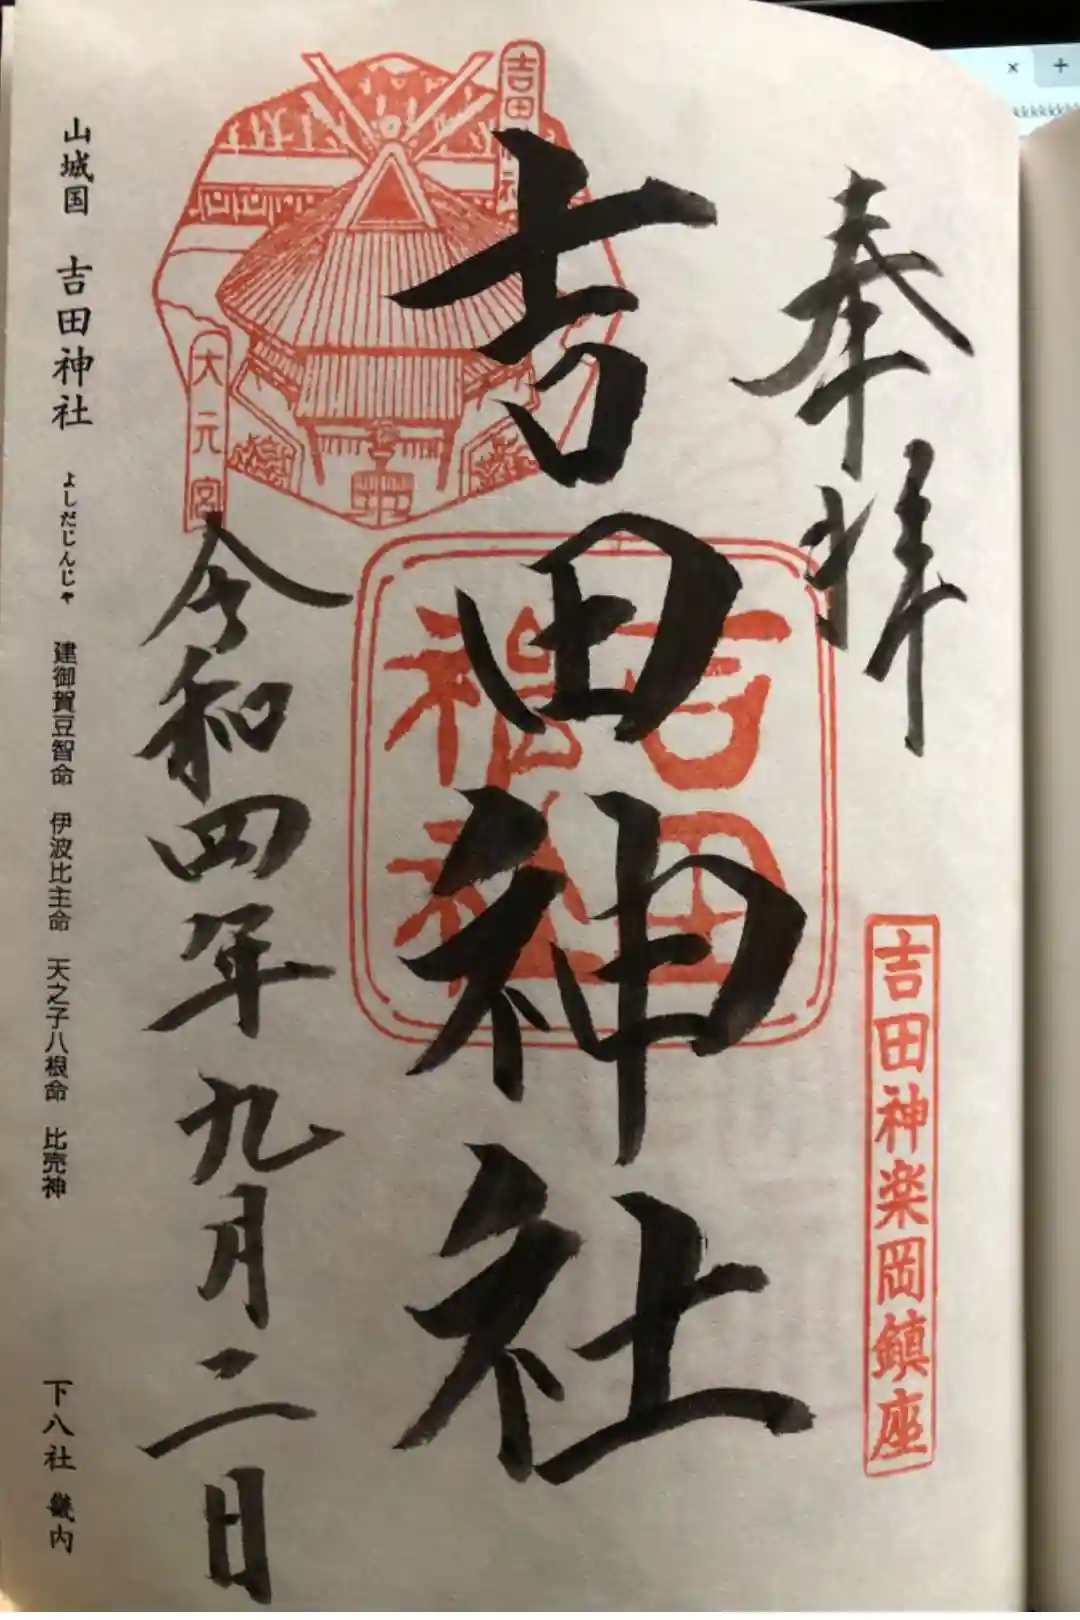 奉拝
吉田神楽岡鎮座
吉田神社
吉田神社
吉田神社
大元宮
令和四年九月二日
山城国 吉田神社 よしだじんじゃ 建御賀豆智命 伊波比主命 天之子八根命 比売神 下八社 畿内